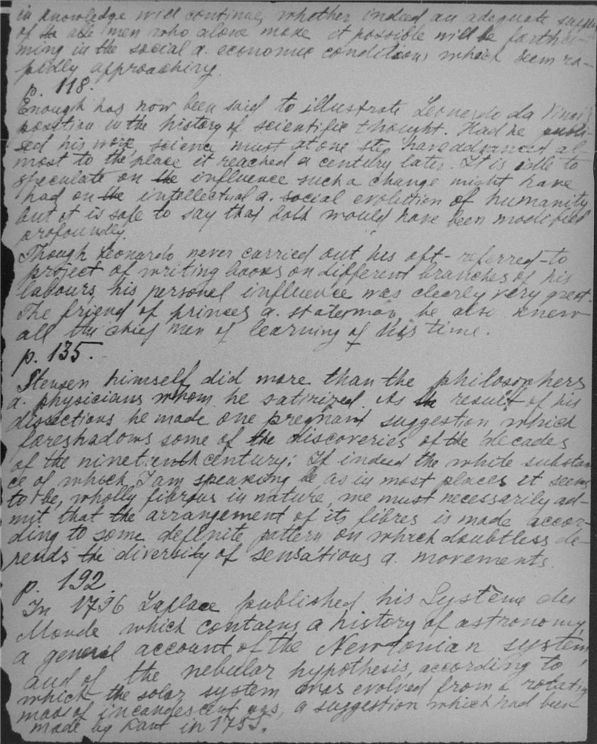 in knowledge will continue, whether indeed an adequate supply
of the able men who alone make it possible will be forthco-
ming in the social a. economic conditions which seem ra-
pidly approaching.
p. 118.
Enough has now been said to illustrate Leonardo da Vinci's
position in the history of scientific thought. Had he publi-
sed his work, science must at one step have advanced al-
most to the place it reached a century later. It is idle to
speculate on the influence such a change might have
had on the intellectual a. social evolution of humanity
but it is safe to say that both would have been modified
profoundly.
Though Leonardo never carried out his oft-referred-to
project of writing books on different branches of his
labours, his personal influence was clearly very great.
The friend of princes a. statesman, he also knew
all the chief men of learning of his time.
p. 135.
Stensen himself did more than the philosophers
a. physicians whom he satirized. As the result of his
dissections he made one pregnant suggestion which
foreshadows some of the discoveries of the decades
of the nineteenth century: If indeed the white substan-
ce of which I am speaking be as in most places it seems
to be, wholly fibrous in nature, we must necessarily ad-
mit that the arrangement of its fibres is made accor-
ding to some definite pattern on which doubtless de-
pends the diversity of sensations a. movements.
p. 192.
In 1796 Laplace published his Système du
Monde which contains a history of astronomy,
a general account of the Newtonian system,
and of the nebular hypothesis, according to
which the solar system was evolved from a rotating
mass of incandescent gas, a suggestion which had been
made by Kant in 1755.